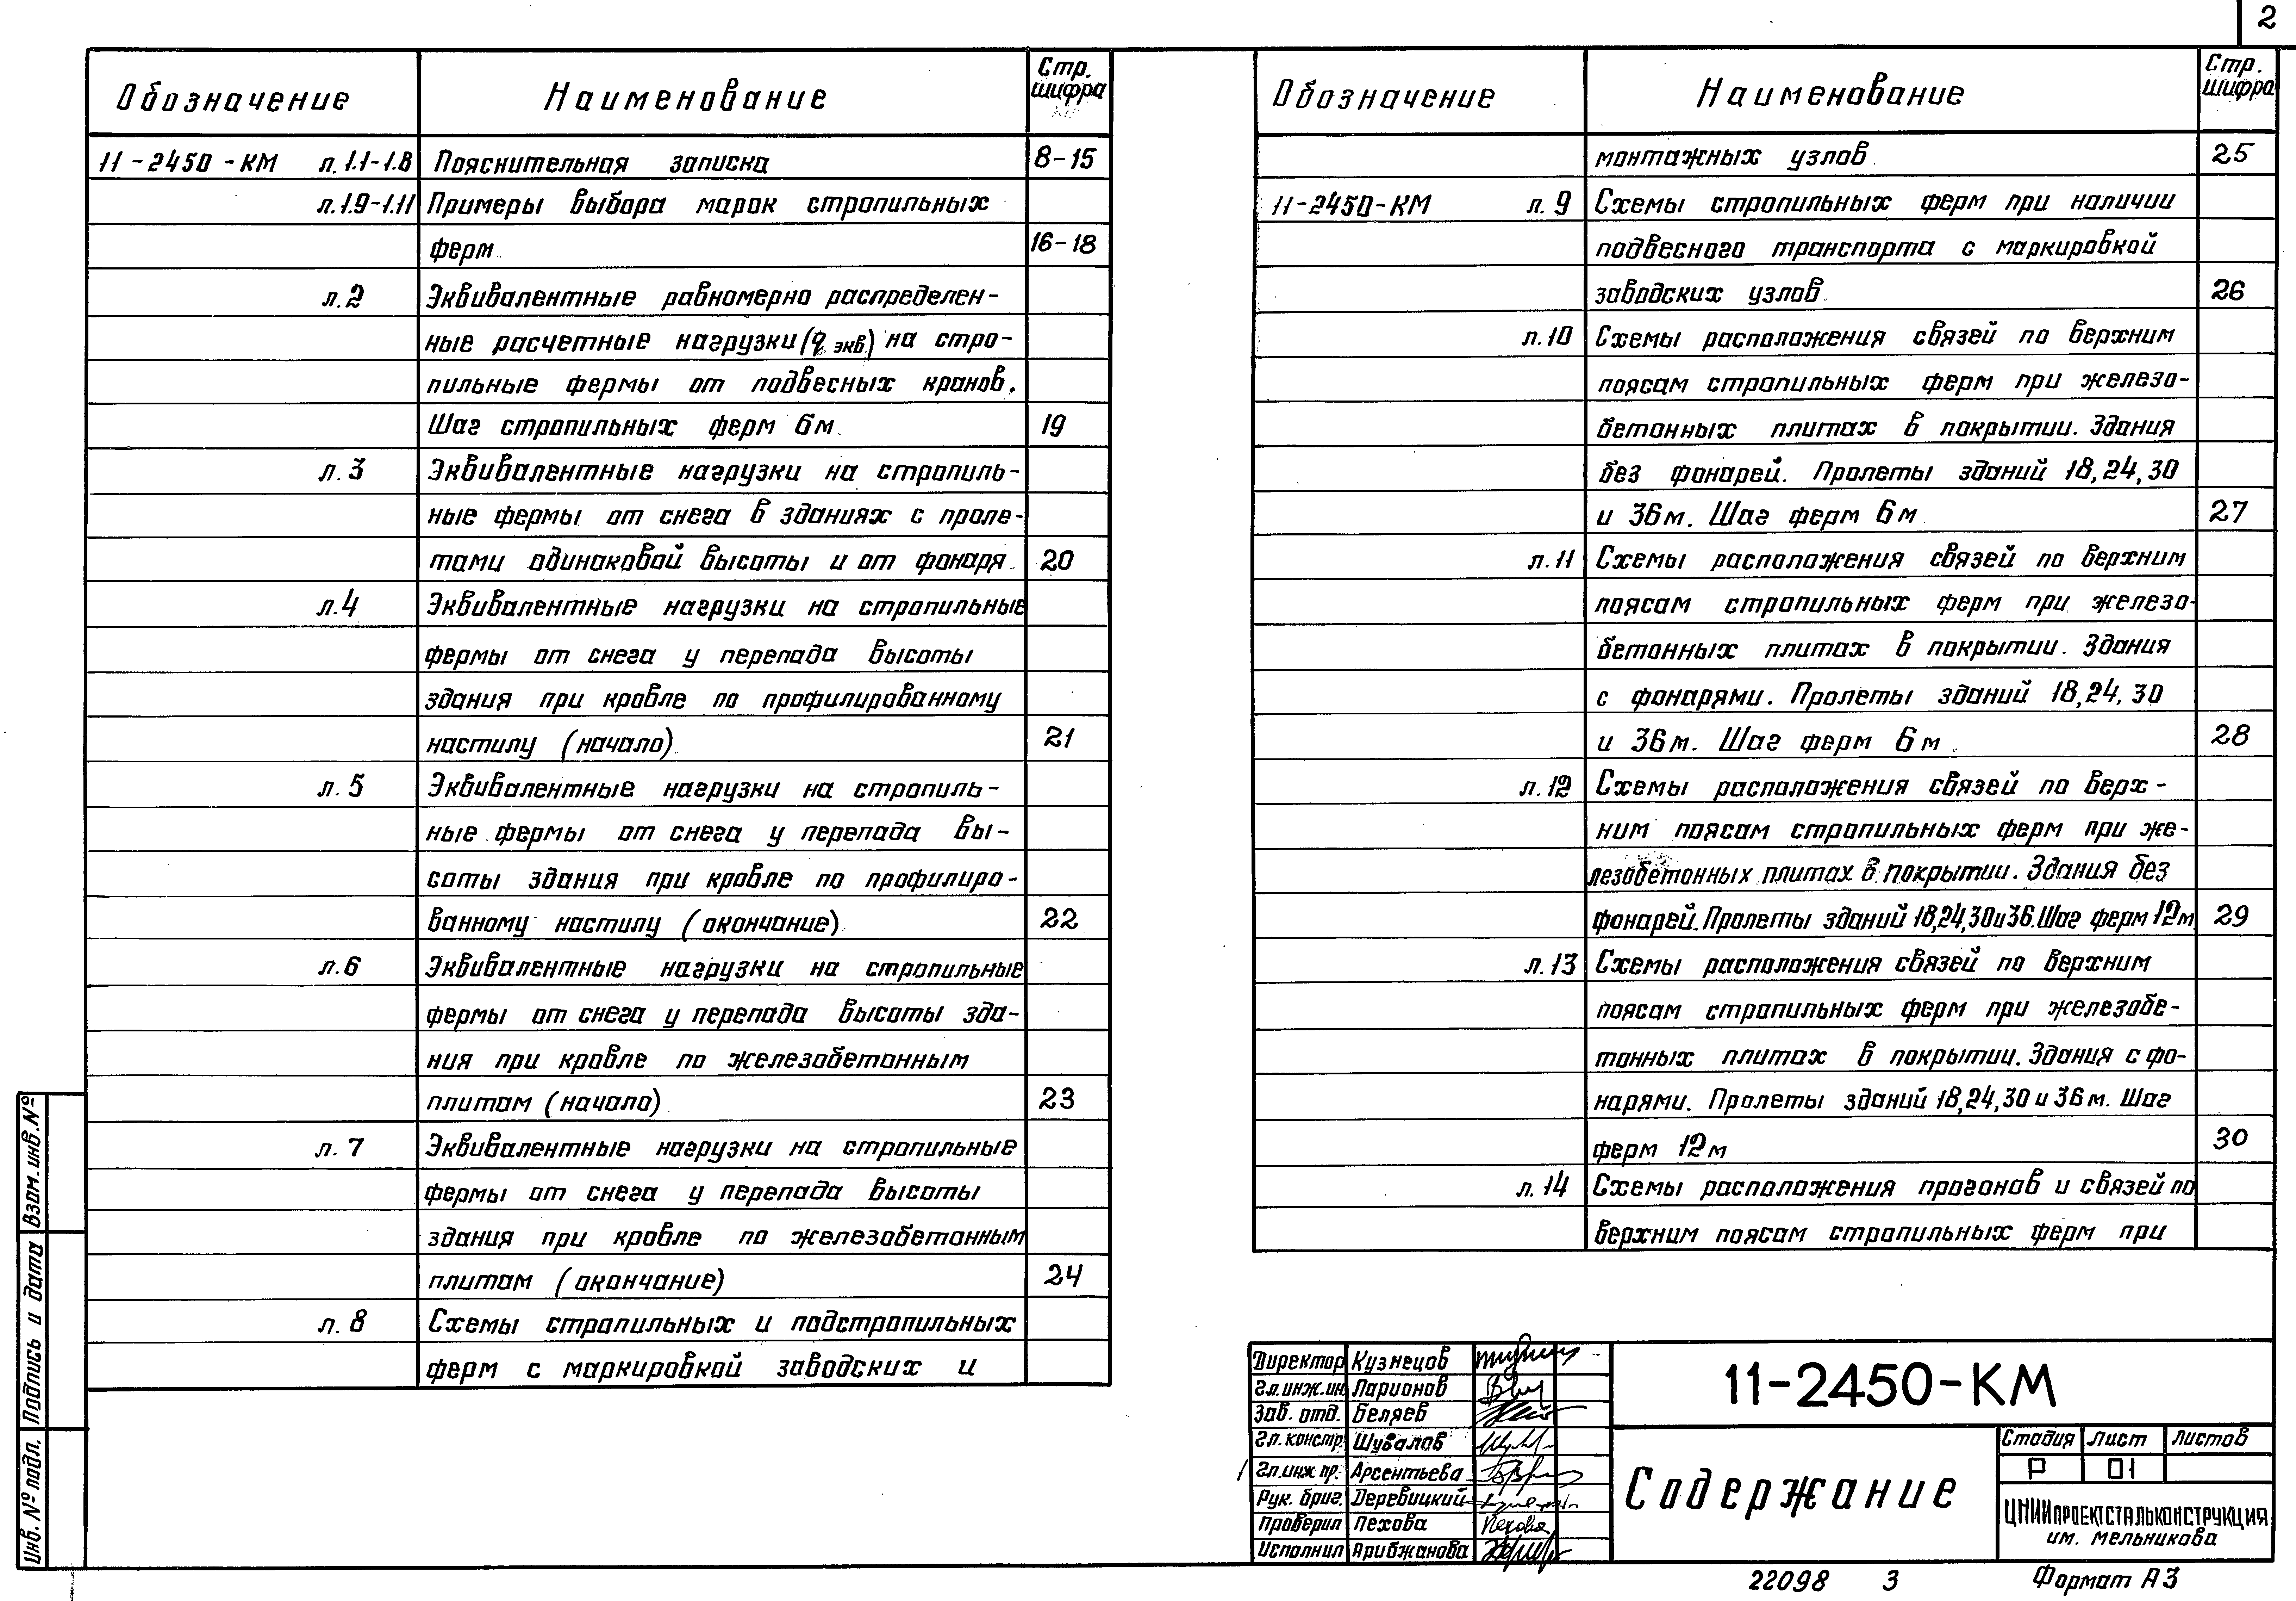 2
Обозначение Наименование Стр. шифра
11-2450-КМ л.1.1-1.8 Пояснительная записка 8-15
л.1.9-1.11 Примеры выбора марок стропильных
ферм 16-18
л.2 Эквивалентные равномерно распределен-
ные расчетные нагрузки (q экв.) на стро-
пильные фермы от подвесных кранов.
Шаг стропильных ферм 6м 19
л.3 Эквивалентные нагрузки на стропиль-
ные фермы от снега в зданиях с проле-
тами одинаковой высоты и от фонаря 20
л.4 Эквивалентные нагрузки на стропильные
фермы от снега у перепада высоты
здания при кровле по профилированному
настилу (начало) 21
л.5 Эквивалентные нагрузки на стропиль-
ные фермы от снега у перепада вы-
соты здания при кровле по профилиро-
ванному настилу (окончание) 22
л.6 Эквивалентные нагрузки на стропильные
фермы от снега у перепада высоты зда-
ния при кровле по железобетонным
плитам (начало) 23
л.7 Эквивалентные нагрузки на стропильные
фермы от снега у перепада высоты
здания при кровле по железобетонным
плитам (окончание) 24
л.8 Схемы стропильных и подстропильных
ферм с маркировкой заводских и
Обозначение Наименование Стр. шифра
монтажных узлов 25
11-2450-КМ л.9 Схемы стропильных ферм при наличии
подвесного транспорта с маркировкой
заводских узлов 26
л.10 Схемы расположения связей по верхним
поясам стропильных ферм при железо-
бетонных плитах в покрытии. Здания
без фонарей. Пролеты зданий 18,24,30
и 36м. Шаг ферм 6м 27
л.11 Схемы расположения связей по верхним
поясам стропильных ферм при железо-
бетонных плитах в покрытии. Здания
с фонарями. Пролеты зданий 18,24,30
и 36м. Шаг ферм 6м 28
л.12 Схемы расположения связей по верх-
ним поясам стропильных ферм при же-
лезобетонных плитах в покрытии. Здания без
фонарей. Пролеты зданий 18,24,30и36. Шаг ферм 12м 29
л.13 Схемы расположения связей по верхним
поясам стропильных ферм при железобе-
тонных плитах в покрытии. Здания с фо-
нарями. Пролеты зданий 18,24,30 и 36м. Шаг
ферм 12м 30
л.14 Схемы расположения прогонов и связей по
верхним поясам стропильных ферм при
Взам. инв. №
Подпись и дата
Инв. № подл.
Директор Кузнецов
Гл.инж.ин. Ларионов
Зав. отд. Беляев
Гл.констр. Шувалов
Гл.инж.пр. Арсентьева
Рук. бриг. Деревицкий
Проверил Пехова Пехова
Исполнил Арибжанова
11-2450-КМ
Содержание
Стадия Лист Листов
Р 01
ЦНИИПРОЕКТСТАЛЬКОНСТРУКЦИЯ
им. Мельникова
22098 3 Формат А3